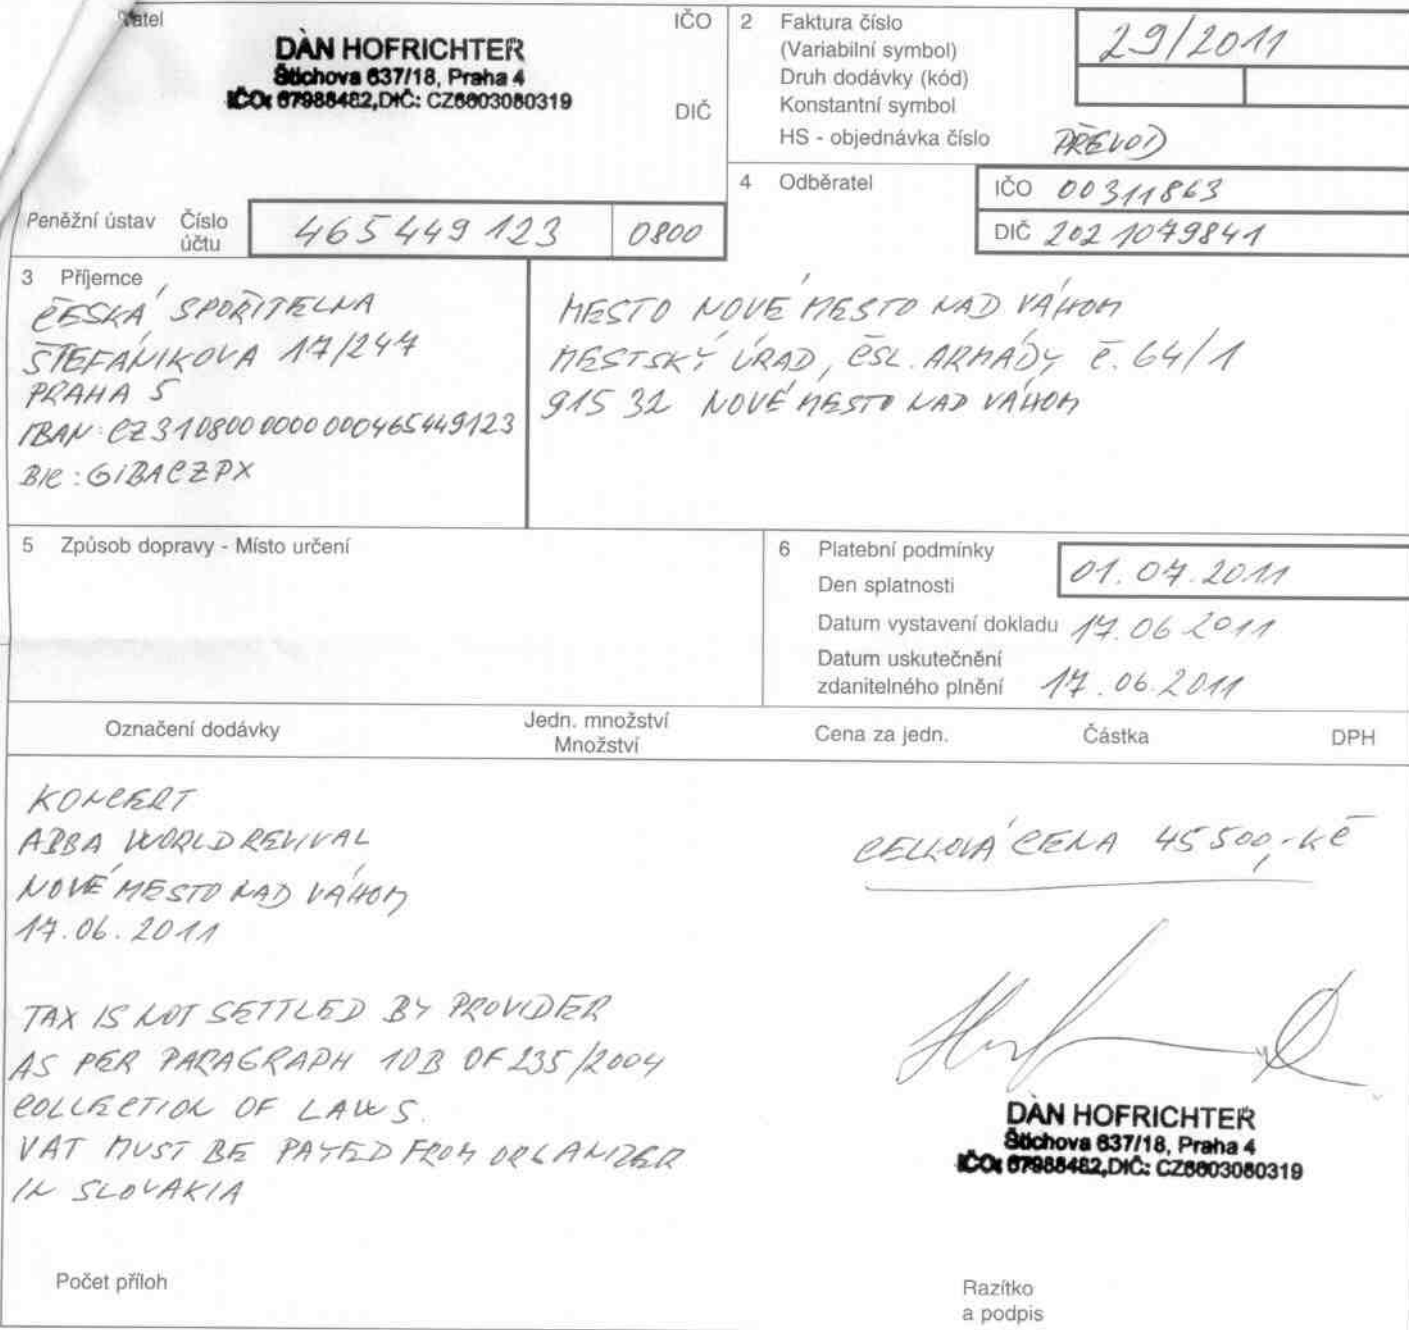 IČO
DAN HOFRICHTER
Štichova 637/18, Praha 4
IČO: 67988482, DIČ: CZ6603060319
DIČ
Peněžní ústav Číslo účtu 465 449 123 0800
2 Faktura číslo 29/2011
(Variabilní symbol)
Druh dodávky (kód)
Konstantní symbol
HS - objednávka číslo PŘEVOD
4 Odběratel
IČO 00311863
DIČ 2021079841
3 Příjemce
ČESKÁ SPOŘITELNA
ŠTEFÁNIKOVA 17/247
PRAHA 5
IBAN: CZ3108000000000465449123
BIC: GIBACZPX
MESTO NOVÉ MESTO NAD VÁHOM
MESTSKÝ ÚRAD, ČSL. ARMÁDY Č. 64/1
915 32 NOVÉ MESTO NAD VÁHOM
5 Způsob dopravy - Místo určení
6 Platební podmínky
Den splatnosti 01.07.2011
Datum vystavení dokladu 17.06 2011
Datum uskutečnění
zdanitelného plnění 17.06.2011
Označení dodávky Jedn. množství Množství Cena za jedn. Částka DPH
KONCERT
ABBA WORLD REVIVAL
NOVÉ MESTO NAD VÁHOM
17.06.2011
CELKOVÁ CENA 45 500,- KČ
TAX IS NOT SETTLED BY PROVIDER
AS PER PARAGRAPH 10B OF 235/2004
COLLECTION OF LAWS.
VAT MUST BE PAYED FROM ORGANIZER
IN SLOVAKIA
DAN HOFRICHTER
Štichova 637/18, Praha 4
IČO: 67988482, DIČ: CZ6603060319
Počet příloh
Razítko
a podpis